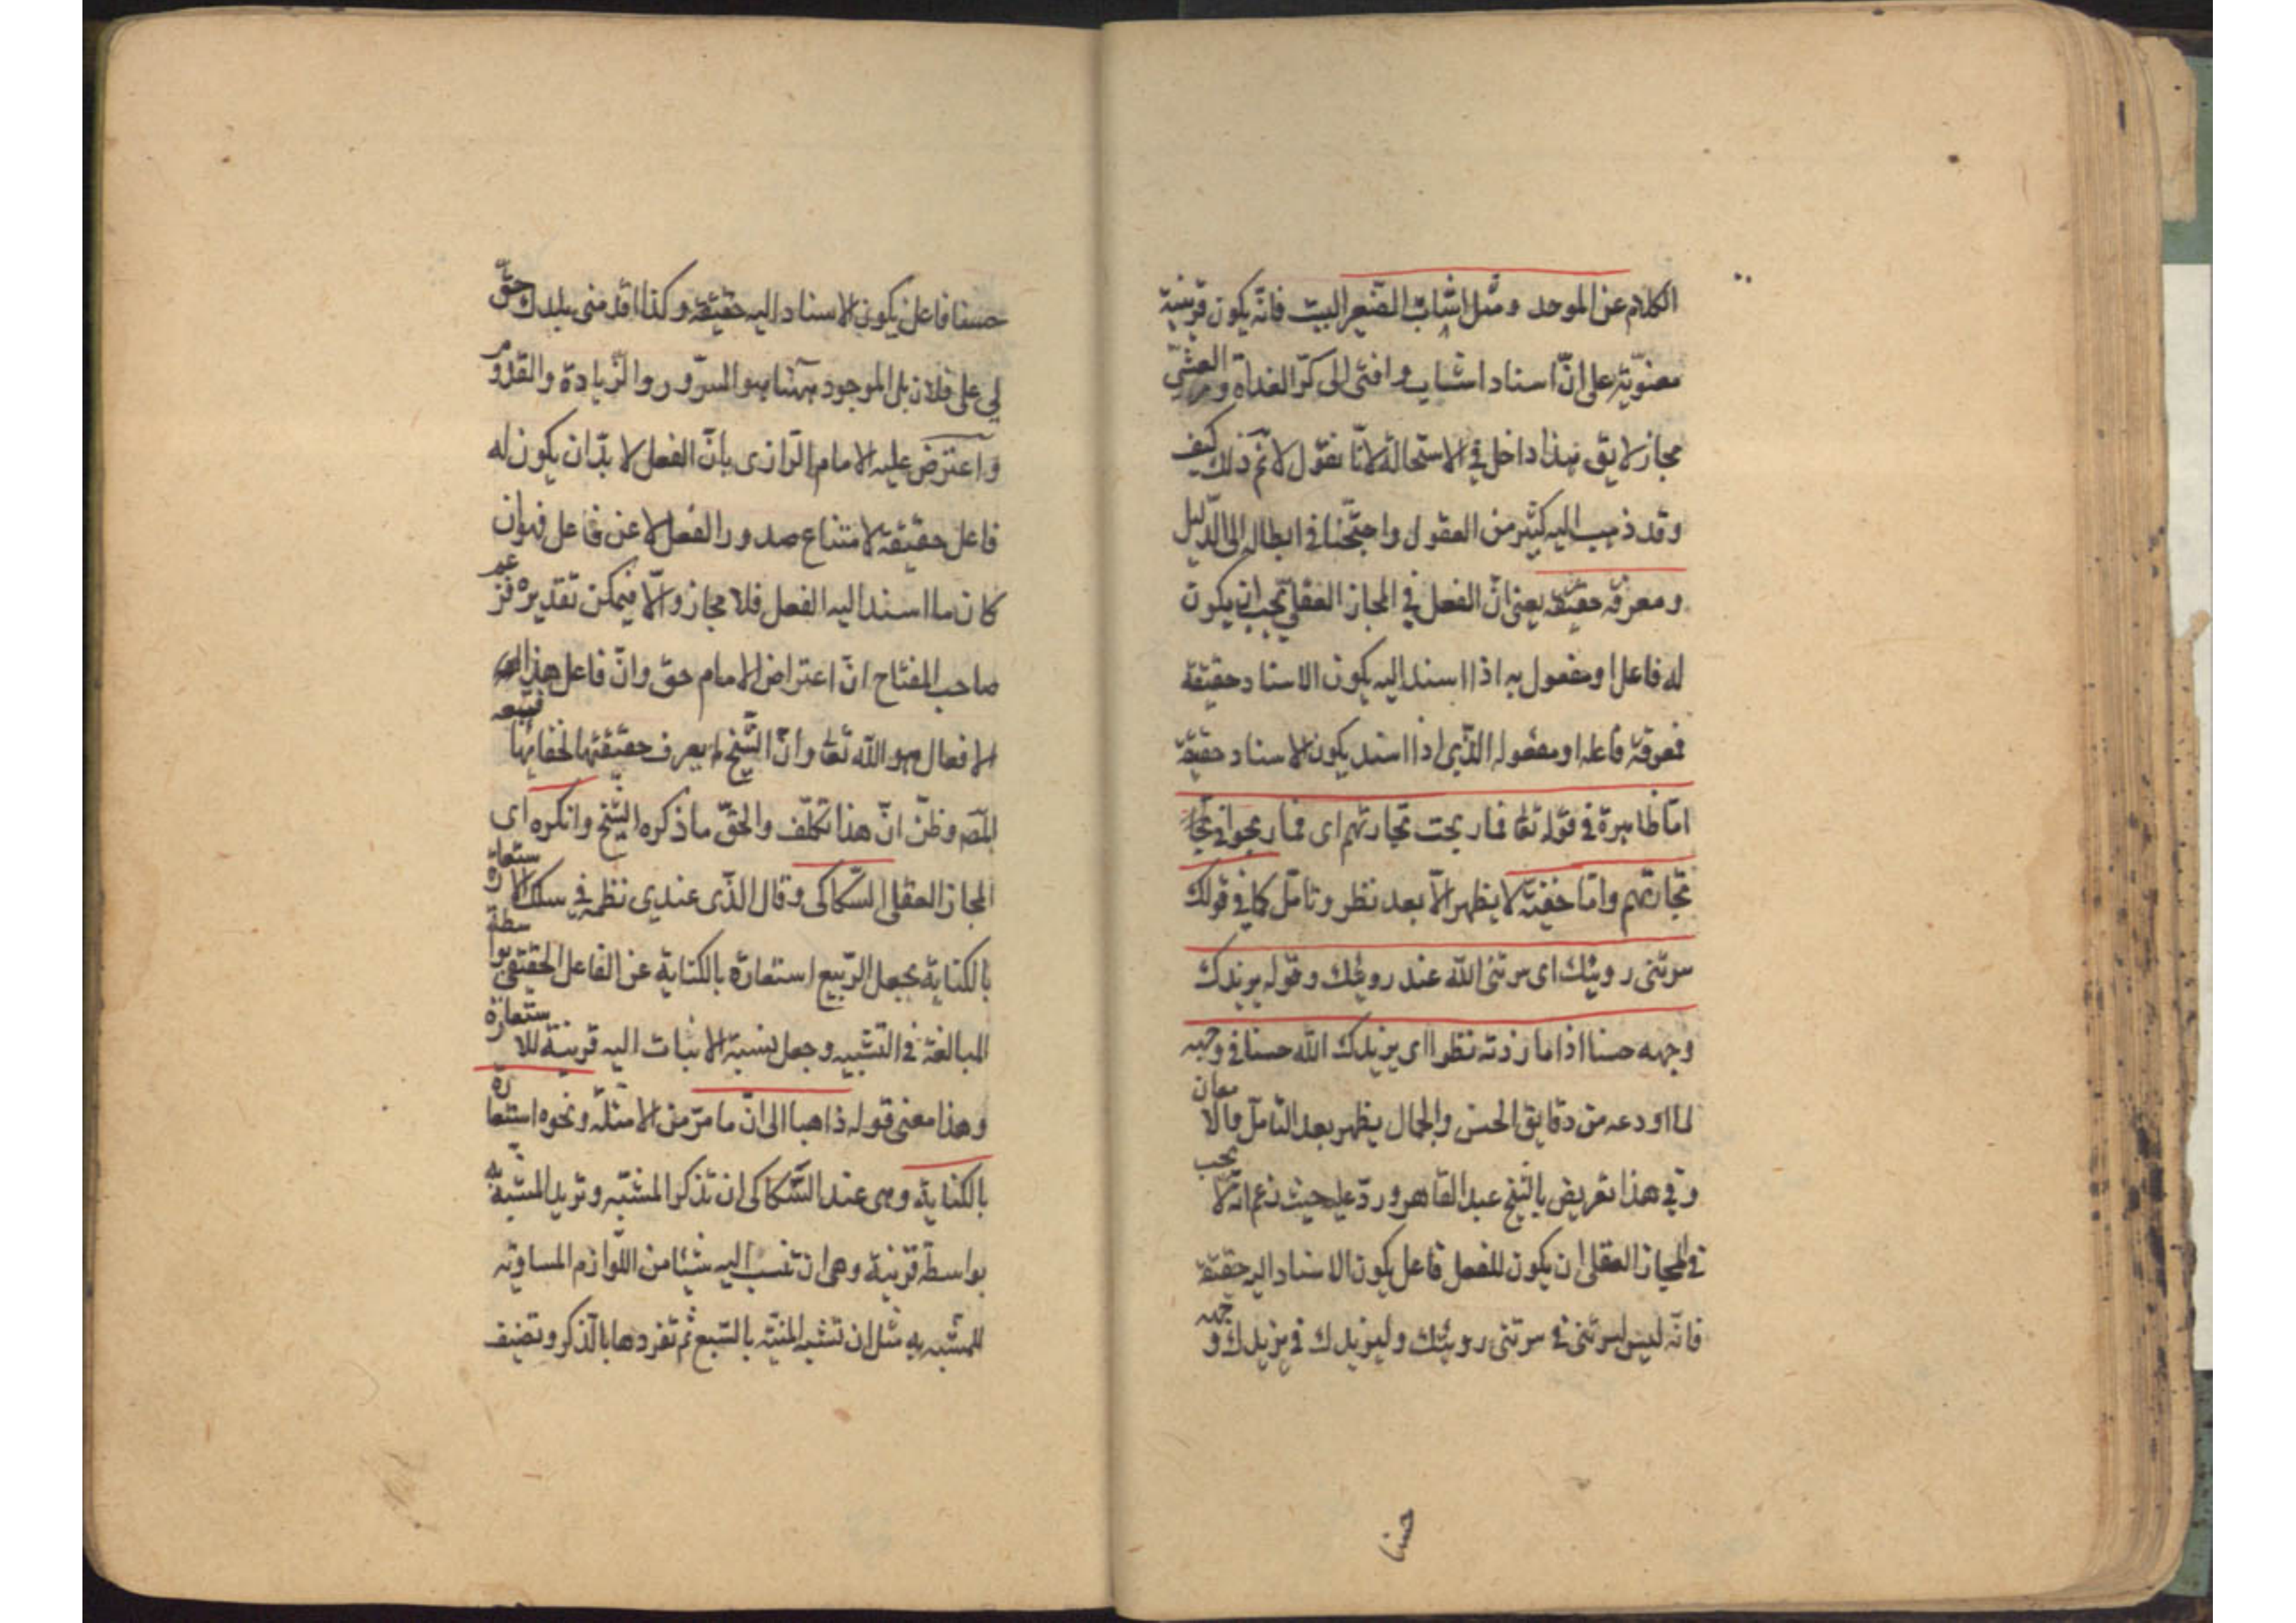 الكلام عن الموحد ومثل اشاب الصغير البيت فانّه يكون قرينية
معنويّة على انّ اسناد اشاب وافنى الى كرّ الغداة ومرّ العشيّ
مجاز لا يق هذا داخل في الاستحالة لانّا نقول لانم ذلك كيف
وقد ذهب اليه كثير من العقول واحتجّنا في ابطاله الى الدّليل
ومعرفة حقيقته يعنى انّ الفعل في المجاز العقلي يجب ان يكون
له فاعل او مفعول به اذا اسند اليه يكون الاسناد حقيقة
فمعرفة فاعله او مفعوله الذي اذا اسند يكون الاسناد حقيقة
امّا ظاهرة في قوله تعا فما ربحت تجارتهم اى فما ربحوا في تجا
تجارتهم وامّا خفيّة لا يظهر الّا بعد نظر وتامّل كما في قولك
سرّتنى رويتك اى سرّتنى الله عند رويتك وقوله يزيدك
وجهه حسنا اذا ما زدته نظرا اى يزيدك الله حسنا في وجهه
لما اودعه من دقايق الحسن والجمال يظهر بعد التامّل والامعان
وفي هذا تعريض بالشيخ عبد القاهر وردّ عليه حيث زعم انّه لا يجب
في المجاز العقلى ان يكون للفعل فاعل يكون الاسناد اليه حقيقة
فانّه ليس لسرّتنى في سرّتنى رويتك وليزيدك في يزيدك وجهه
حسنا
حسنا فاعل يكون الاسناد اليه حقيقة وكذا اقدمنى بلدك حقّ
لي على فلان بل الموجود ههنا هو السرور والزّيادة والقدوم
واعترض عليه الامام الرّازى بانّ الفعل لا بدّ ان يكون له
فاعل حقيقة لامتناع صدور الفعل لا عن فاعل فهو ان
كان ما اسند اليه الفعل فلا مجاز والّا فيمكن تقديره فزعم
صاحب المفتاح انّ اعتراض الامام حق وانّ فاعل هذه
الافعال هو الله تعا وانّ الشّيخ لم يعرف حقيقتها لخفائها فتبعه
المص وظنّ انّ هذا تكلّف والحقّ ما ذكره الشّيخ وانكره اى
المجاز العقلى السّكاكى وقال الذّى عندى نظمه في سلك الاستعارة
بالكناية بجعل الرّبيع استعارة بالكناية عن الفاعل الحقيقى بواسطة
المبالغة في التشبيه وجعل نسبة الانبات اليه قرينة للاستعارة
وهذا معنى قوله ذاهبا الى انّ ما مرّ من الامثلة ونحوه استعارة
بالكناية وهى عند السّكاكى ان تذكر المشبّه وتريد المشبّه به
بواسطة قرينة وهى ان تنسب اليه شيئا من اللّوازم المساوية
للمشبه به مثل ان تشبه المنيّة بالسّبع ثم تفردها بالذكر وتضيف